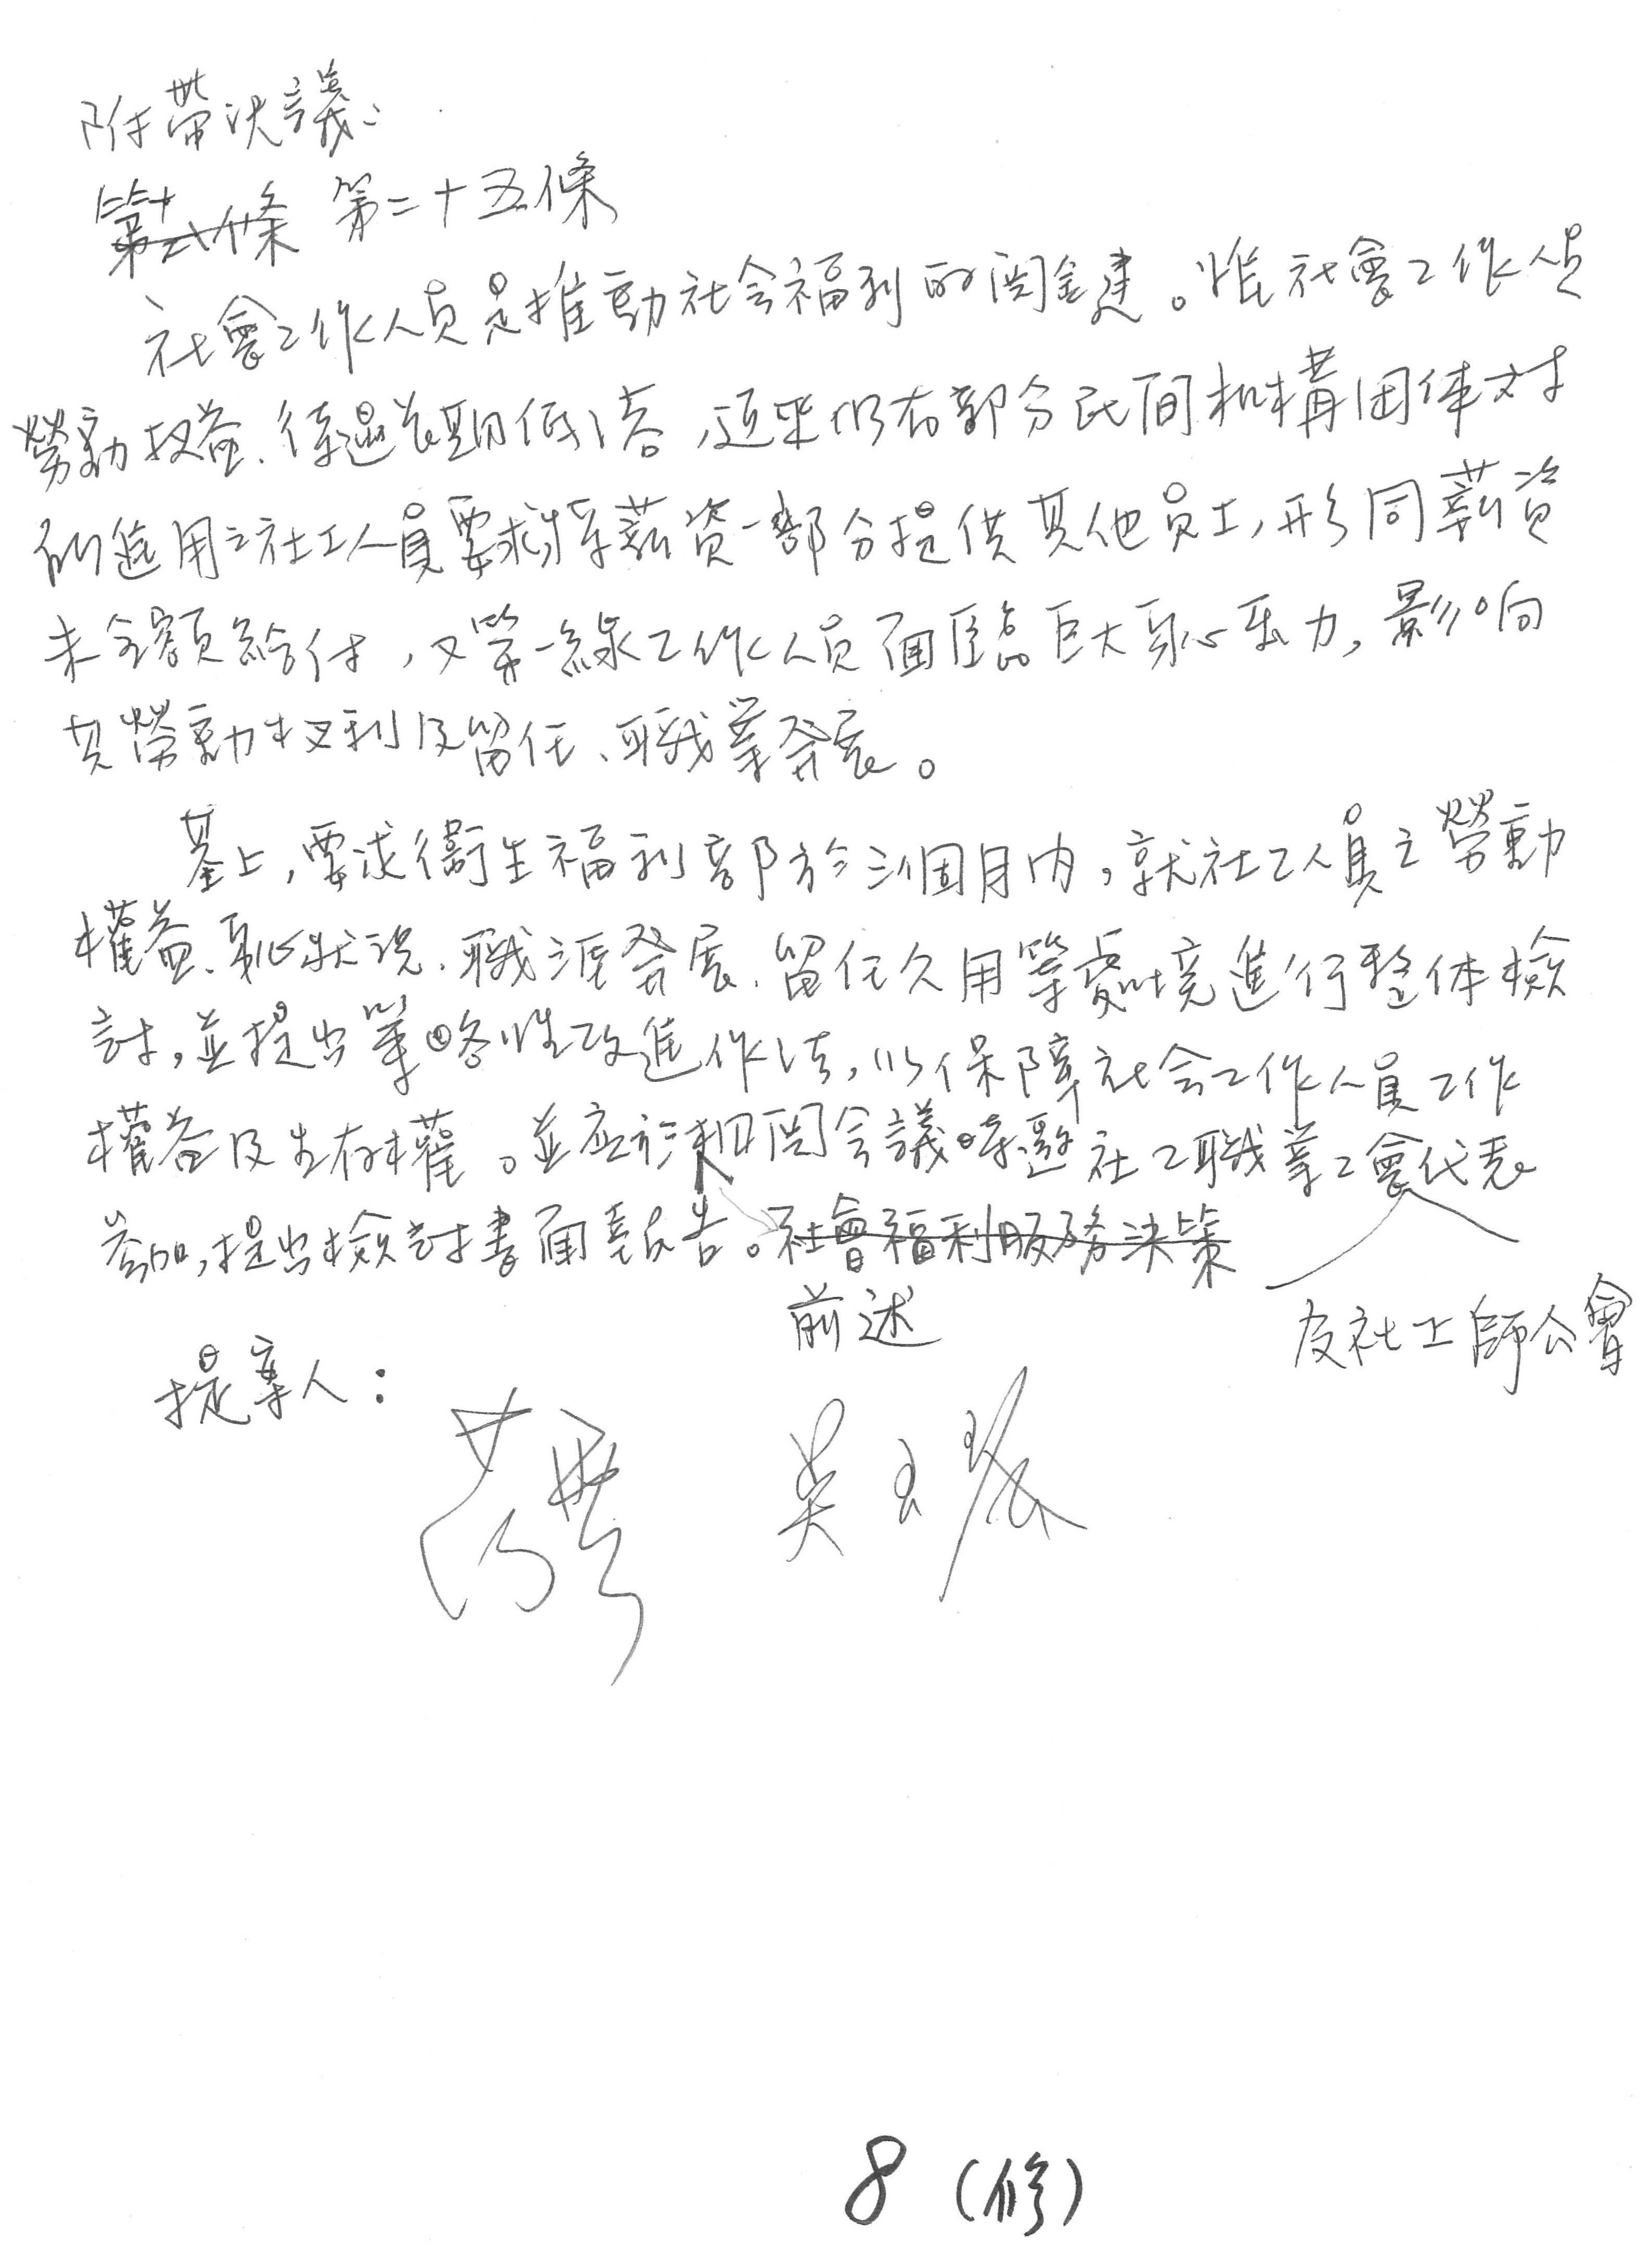 附帶決議：
第二十六條 第二十五條
社會工作人員是推動社会福利的関鍵。惟社會工作人員
勞動权益、待遇長期低落，近來仍有部分民間机構团体对
所進用之社工人員要求將薪資一部分提供其他員工，形同薪資
未全額給付，又第一線工作人員面臨巨大身心压力，影响
其勞動权利及留任、職業發展。
基上，要求衛生福利部於三個月内，就社工人員之勞動
權益、身心狀況、職涯發展、留任久用等處境進行整体檢
討，並提出策略性改進作法，以保障社会工作人員工作
權益及生存權。並應於相関会議時邀社工職業工會代表
参加，提出檢討書面報告。社會福利服務決策
前述
及社工師公會
提案人：
吳玉琴
8（修）